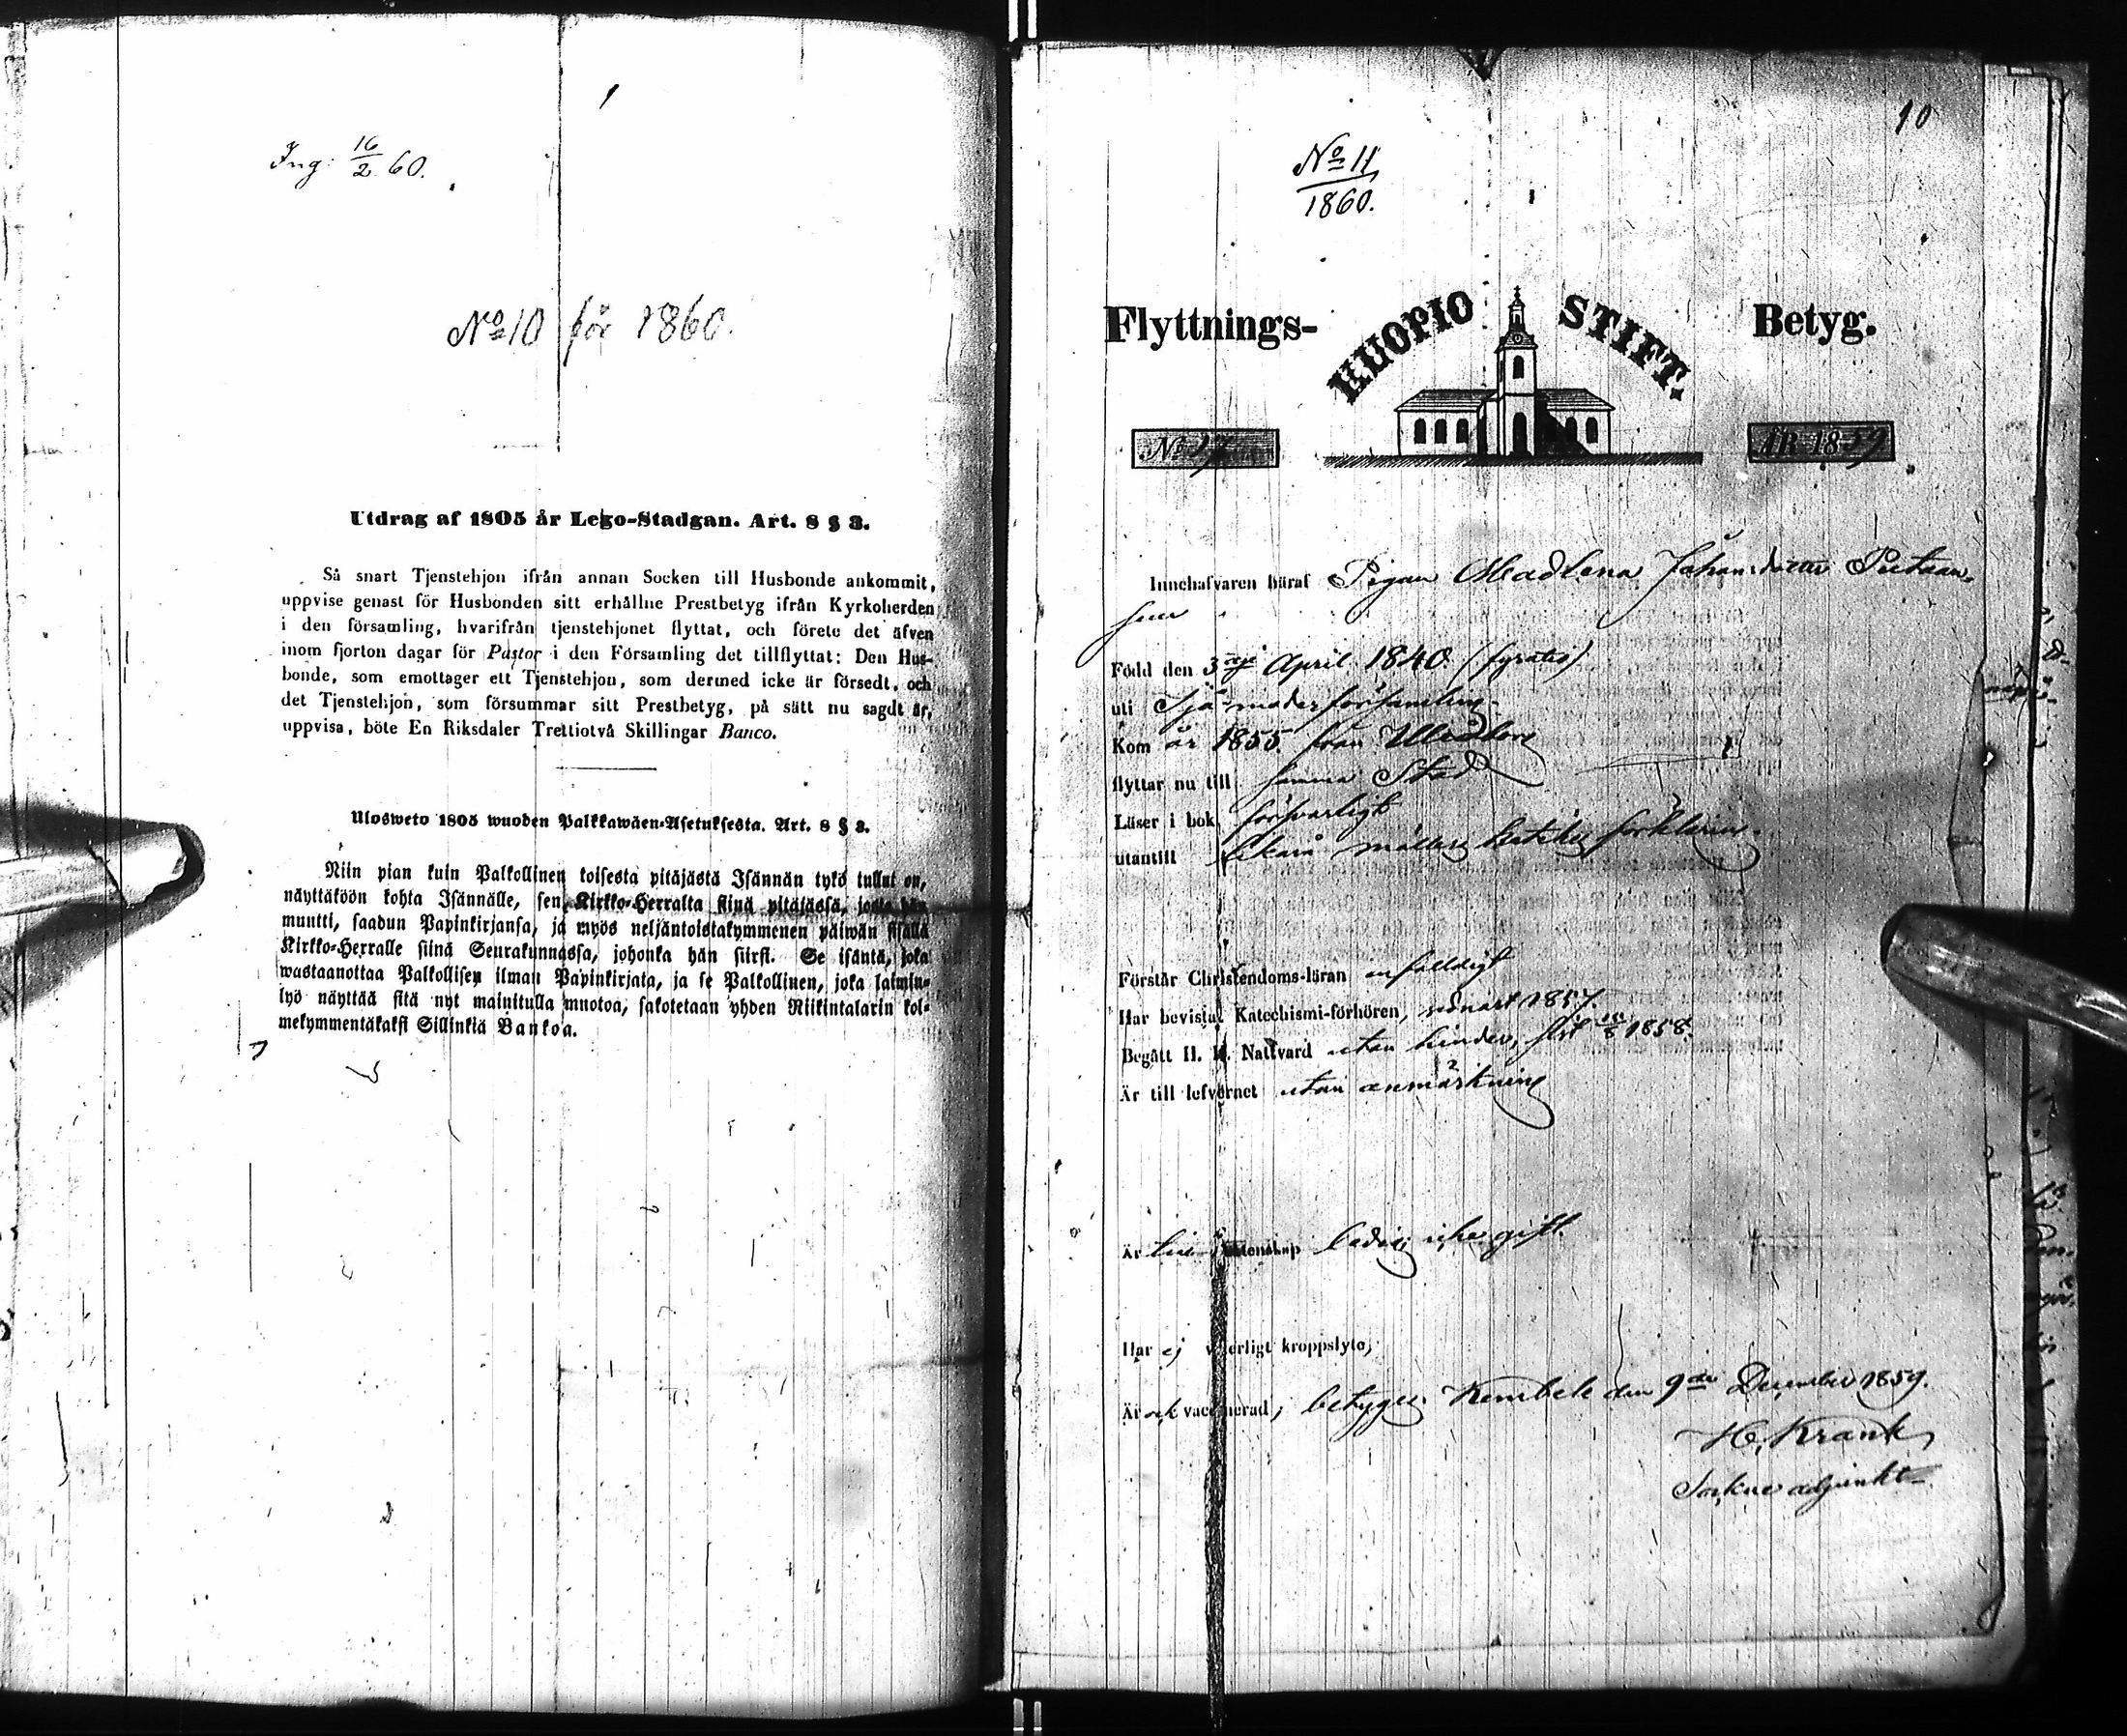 Ing: 16/2 60.
No 10 för 1860.
Utdrag af 1805 år Lego-Stadgan. Art. 8 § 3.
Så snart Tjenstehjon ifrån annan Socken till Husbonde ankommit,
uppvise genast för Husbonden sitt erhållne Prestbetyg ifrån Kyrkoherden
i den församling, hvarifrån tjenstehjonet flyttat, och förete det äfven
inom fjorton dagar för Pastor i den Församling det tillflyttat: Den Hus-
bonde, som emottager ett Tjenstehjon, som dermed icke är försedt, och
det Tjenstehjon, som försummar sitt Prestbetyg, på sätt nu sagdt är,
uppvisa, böte En Riksdaler Trettiotvå Skillingar Banco.
Ulosweto 1805 wuoden Palkkawäen-Asetuksesta. Art. 8 § 3.
Niin pian kuin Palkollinen toisesta pitäjästä Isännän tykö tullut on,
näyttäköön kohta Isännälle, sen Kirkko-Herralta siinä pitäjässä, josta hän
muutti, saadun Papinkirjansa, ja myös neljäntoistakymmenen päiwän sisällä
Kirkko-Herralle siinä Seurakunnassa, johonka hän siirsi. Se isäntä, joka
wastaanottaa Palkollisen ilman Papinkirjata, ja se Palkollinen, joka laimin-
lyö näyttää sitä nyt mainitulla muotoa, sakotetaan yhden Riikintalarin kol-
mekymmentäkaksi Sillinkiä Bankoa.
10
No 11
1860.
Flyttnings- KUOPIO STIFT. Betyg.
No ÅR 1859
Innehafvaren häraf Pigan Madlena Johansdotter
Född den 3dje April 1840
uti moderförsamling
Kom år 1855 från Uleåborg
flyttar nu till samma Stad
Läser i bok försvarligt
utantill
Förstår Christendoms-läran enfaldigt
Har bevistat Katechismi-förhören, sednast 1857.
Begått H. H. Nattvard utan hinder, 1858.
Är till lefvernet utan anmärkning
Är till Äktenskap ledig, icke gift.
Har ej veterligt kroppslyte,
Är ock vaccinerad, betygar. Kembele den 9de December 1859.
H. Krank
Sockne adjunkt